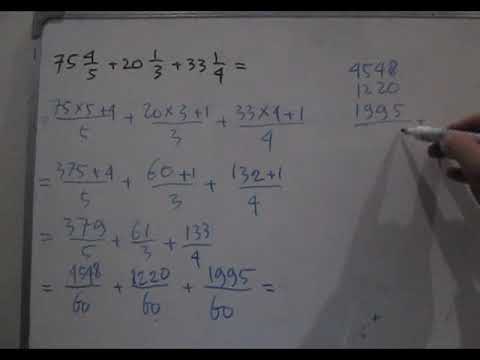 75 4/5 + 20 1/3 + 33 1/4 =
= 75×5+4/5 + 20×3+1/3 + 33×4+1/4
= 375+4/5 + 60+1/3 + 132+1/4
= 379/5 + 61/3 + 133/4
= 4548/60 + 1220/60 + 1995/60 =
4548
1220
1995
+